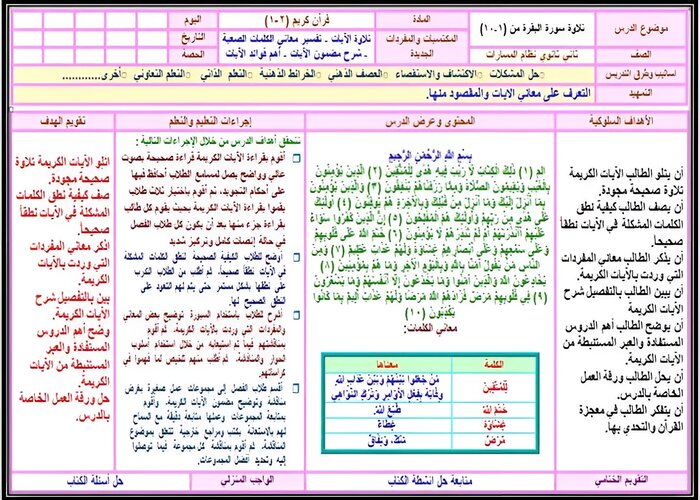 موضوع الدرس
تلاوة سورة البقرة من (١-١٠)
المادة
قرآن كريم (٢-١)
اليوم
الصف
ثاني ثانوي نظام المسارات
المكتسبات والمفردات الجديدة
تلاوة الآيات - تفسير معاني الكلمات الصعبة - شرح مضمون الآيات - أهم فوائد الآيات
التاريخ
الحصة
اساليب وطرق التدريس
حل المشكلات الاكتشاف والاستقصاء العصف الذهني الخرائط الذهنية التعلم الذاتي التعلم التعاوني أخرى............
التمهيد
التعرف على معاني الآيات والمقصود منها.
الأهداف السلوكية
المحتوى وعرض الدرس
إجراءات التعليم والتعلم
تقويم الهدف
أن يتلو الطالب الآيات الكريمة
تلاوة صحيحة مجودة.
أن يصف الطالب كيفية نطق
الكلمات المشكلة في الآيات نطقاً
صحيحاً.
أن يذكر الطالب معاني المفردات
التي وردت بالآيات الكريمة.
أن يبين الطالب بالتفصيل شرح
مضمون الآيات الكريمة.
أن يوضح الطالب أهم الدروس
المستفادة والعبر المستنبطة من الآيات
الكريمة.
أن يحل الطالب ورقة العمل
الخاصة بالدرس.
أن يتفكر الطالب في معجزة
القرآن والتحدي بها.
بِسْمِ اللَّهِ الرَّحْمَنِ الرَّحِيمِ
الم (١) ذَلِكَ الْكِتَابُ لَا رَيْبَ فِيهِ هُدًى لِلْمُتَّقِينَ (٢) الَّذِينَ يُؤْمِنُونَ
بِالْغَيْبِ وَيُقِيمُونَ الصَّلَاةَ وَمِمَّا رَزَقْنَاهُمْ يُنْفِقُونَ (٣) وَالَّذِينَ يُؤْمِنُونَ
بِمَا أُنْزِلَ إِلَيْكَ وَمَا أُنْزِلَ مِنْ قَبْلِكَ وَبِالْآخِرَةِ هُمْ يُوقِنُونَ (٤) أُولَئِكَ
عَلَى هُدًى مِنْ رَبِّهِمْ وَأُولَئِكَ هُمُ الْمُفْلِحُونَ (٥) إِنَّ الَّذِينَ كَفَرُوا سَوَاءٌ
عَلَيْهِمْ أَأَنْذَرْتَهُمْ أَمْ لَمْ تُنْذِرْهُمْ لَا يُؤْمِنُونَ (٦) خَتَمَ اللَّهُ عَلَى قُلُوبِهِمْ
وَعَلَى سَمْعِهِمْ وَعَلَى أَبْصَارِهِمْ غِشَاوَةٌ وَلَهُمْ عَذَابٌ عَظِيمٌ (٧) وَمِنَ
النَّاسِ مَنْ يَقُولُ آمَنَّا بِاللَّهِ وَبِالْيَوْمِ الْآخِرِ وَمَا هُمْ بِمُؤْمِنِينَ (٨)
يُخَادِعُونَ اللَّهَ وَالَّذِينَ آمَنُوا وَمَا يَخْدَعُونَ إِلَّا أَنْفُسَهُمْ وَمَا يَشْعُرُونَ
(٩) فِي قُلُوبِهِمْ مَرَضٌ فَزَادَهُمُ اللَّهُ مَرَضًا وَلَهُمْ عَذَابٌ أَلِيمٌ بِمَا كَانُوا
يَكْذِبُونَ (١٠)
معاني الكلمات:
الكلمة
معناها
لِلْمُتَّقِينَ
مَنْ جَعَلُوا بَيْنَهُمْ وَبَيْنَ عَذَابِ اللهِ
وِقَايَةً بِفِعْلِ الْأَوَامِرِ وَتَرْكِ النَّوَاهِي
خَتَمَ اللَّهُ
طَبَعَ اللهُ.
غِشَاوَةٌ
غِطَاءٌ
مَرَضٌ
شَكٌّ، وَنِفَاقٌ
تتحقق أهداف الدرس من خلال الإجراءات التالية :
أقوم بقراءة الآيات الكريمة قراءة صحيحة بصوت
عالي وواضح يصل لمسامع الطلاب أحافظ فيها
على أحكام التجويد، ثم أقوم باختيار ثلاث طلاب
يقوموا بقراءة الآيات الكريمة بحيث يقوم كل طالب
بقراءة جزء منها بعد أن يكون كل طلاب الفصل
في حالة إنصات كامل وتركيز شديد
أوضح للطلاب الكيفية الصحيحة لنطق الكلمات المشكلة
في الآيات نطقاً صحيحاً. ثم أطلب من الطلاب التدرب
على نطقها بشكل مستمر حتى يتم لهم التعود على
النطق الصحيح لها.
أشرح للطلاب باستخدام السبورة توضيح بعض المعاني
والمفردات التي وردت بالآيات الكريمة. ثم أقوم
بمناقشتهم فيما تم استيعابه من خلال استخدام أسلوب
الحوار والمناقشة. ثم أطلب منهم تلخيص لما فهموا في
كراساتهم.
أقسم طلاب الفصل إلى مجموعات عمل صغيرة بغرض
مناقشة وتوضيح مضمون الآيات الكريمة. وأقوم
بمتابعة المجموعات وعملها متابعة دقيقة مع السماح
لهم بالاستعانة بكتب ومراجع خارجية تتعلق بموضوع
المناقشة. ثم أقوم مناقشة كل مجموعة فيما توصلوا
إليه وتحديد أفضل المجموعات.
اتلو الآيات الكريمة تلاوة
صحيحة مجودة.
صف كيفية نطق الكلمات
المشكلة في الآيات نطقاً
صحيحاً.
أذكر معاني المفردات
التي وردت بالآيات
الكريمة.
بين بالتفصيل شرح
مضمون الآيات الكريمة.
وضح أهم الدروس
المستفادة والعبر
المستنبطة من الآيات
الكريمة.
حل ورقة العمل الخاصة
بالدرس.
التقويم الختامي
متابعة حل انشطة الكتاب
الواجب المنزلي
حل أسئلة الكتاب